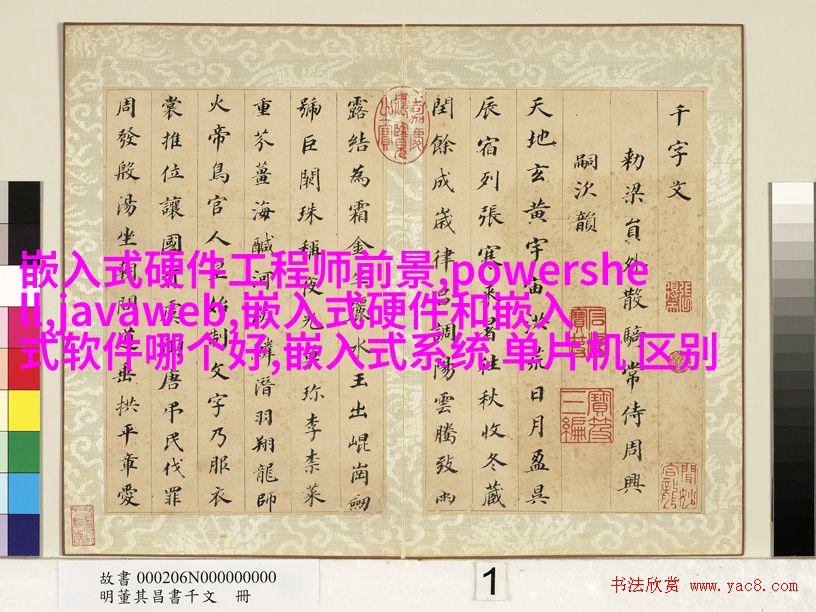 千字文
勑梁貟外散騎常侍周興
嗣次韻
天地玄黃宇宙洪荒日月盈昃
辰宿列張寒来暑往秋收冬藏
閏餘成歲律吕調陽雲騰致雨
露結為霜金生麗水玉出崐崗劒
號巨闕珠稱夜光菓珍李柰菜
重芥薑海醎河淡鱗潛羽翔龍師
火帝鳥官人皇始制文字乃服衣
裳推位讓國有虞陶唐弔民伐罪
周發殷湯坐朝問道垂拱平章愛
嵌入式硬件工程师前景,powershe
ll,javaweb,嵌入式硬件和嵌入
式软件哪个好,嵌入式系统 单片机 区别
故書 000206N000000000
明董其昌書千文 冊
1
书法欣赏 www.yac8.com